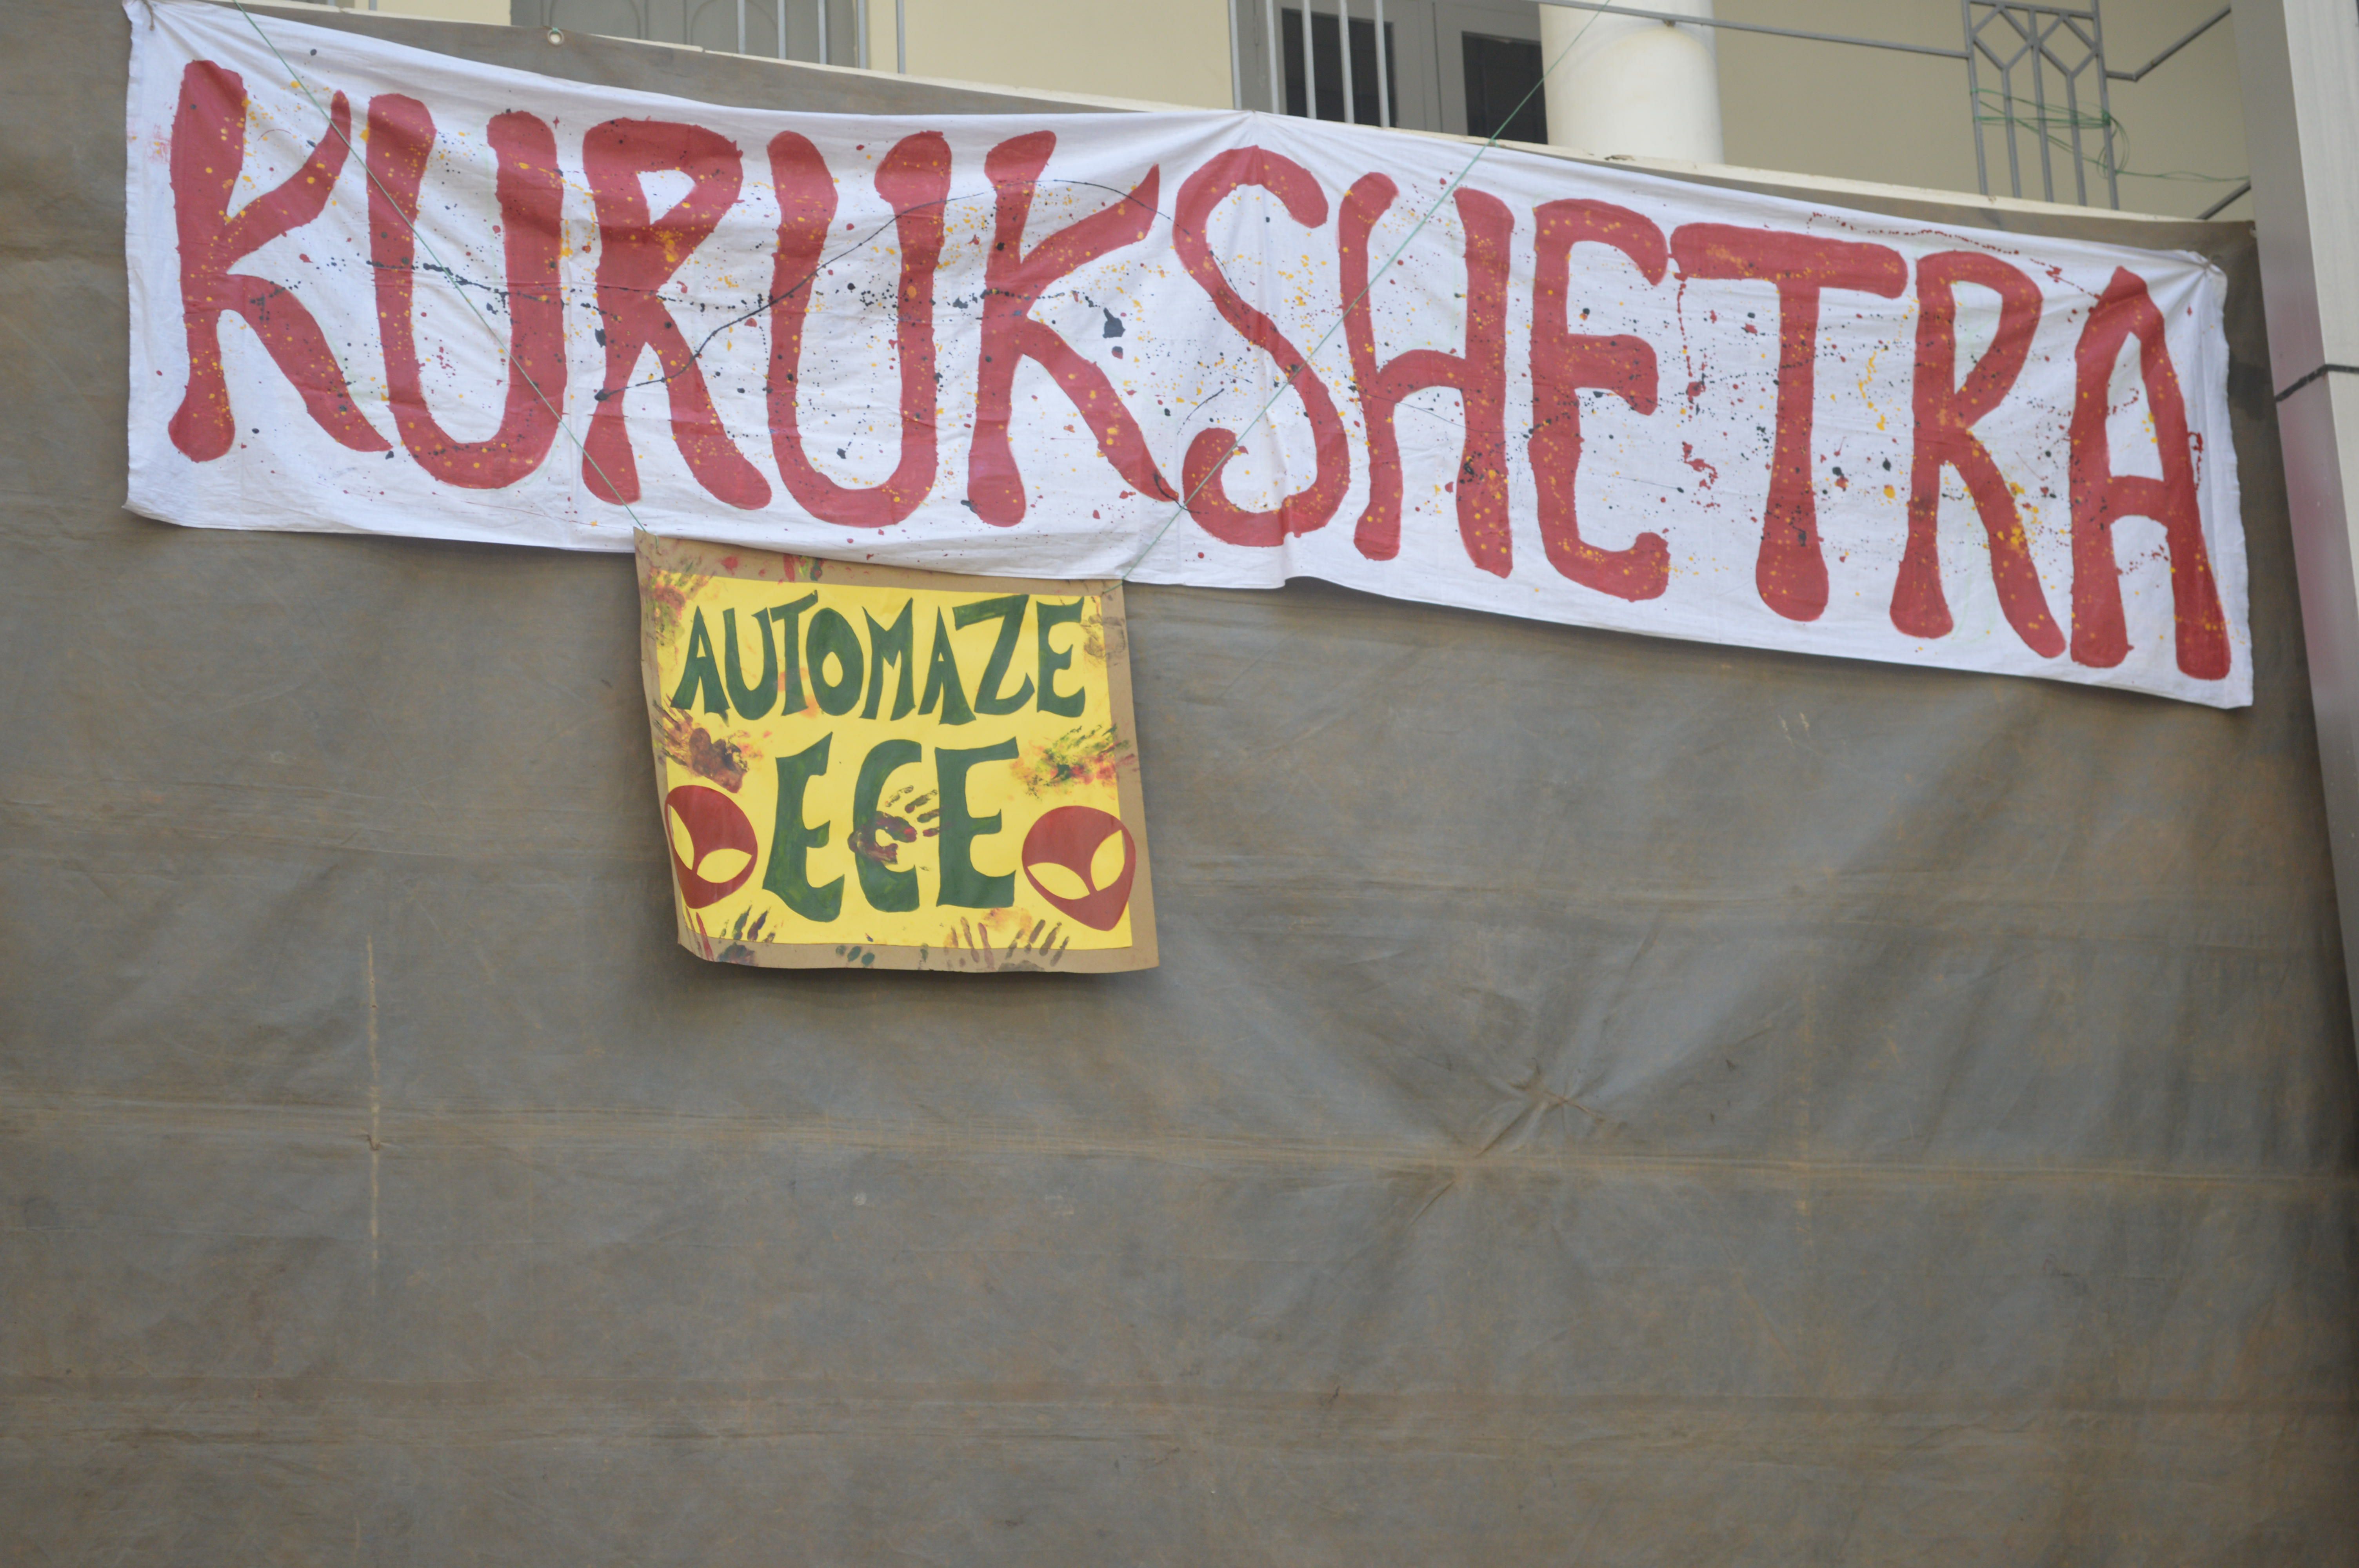 KURUKSHETRA
AUTOMAZE
ECE